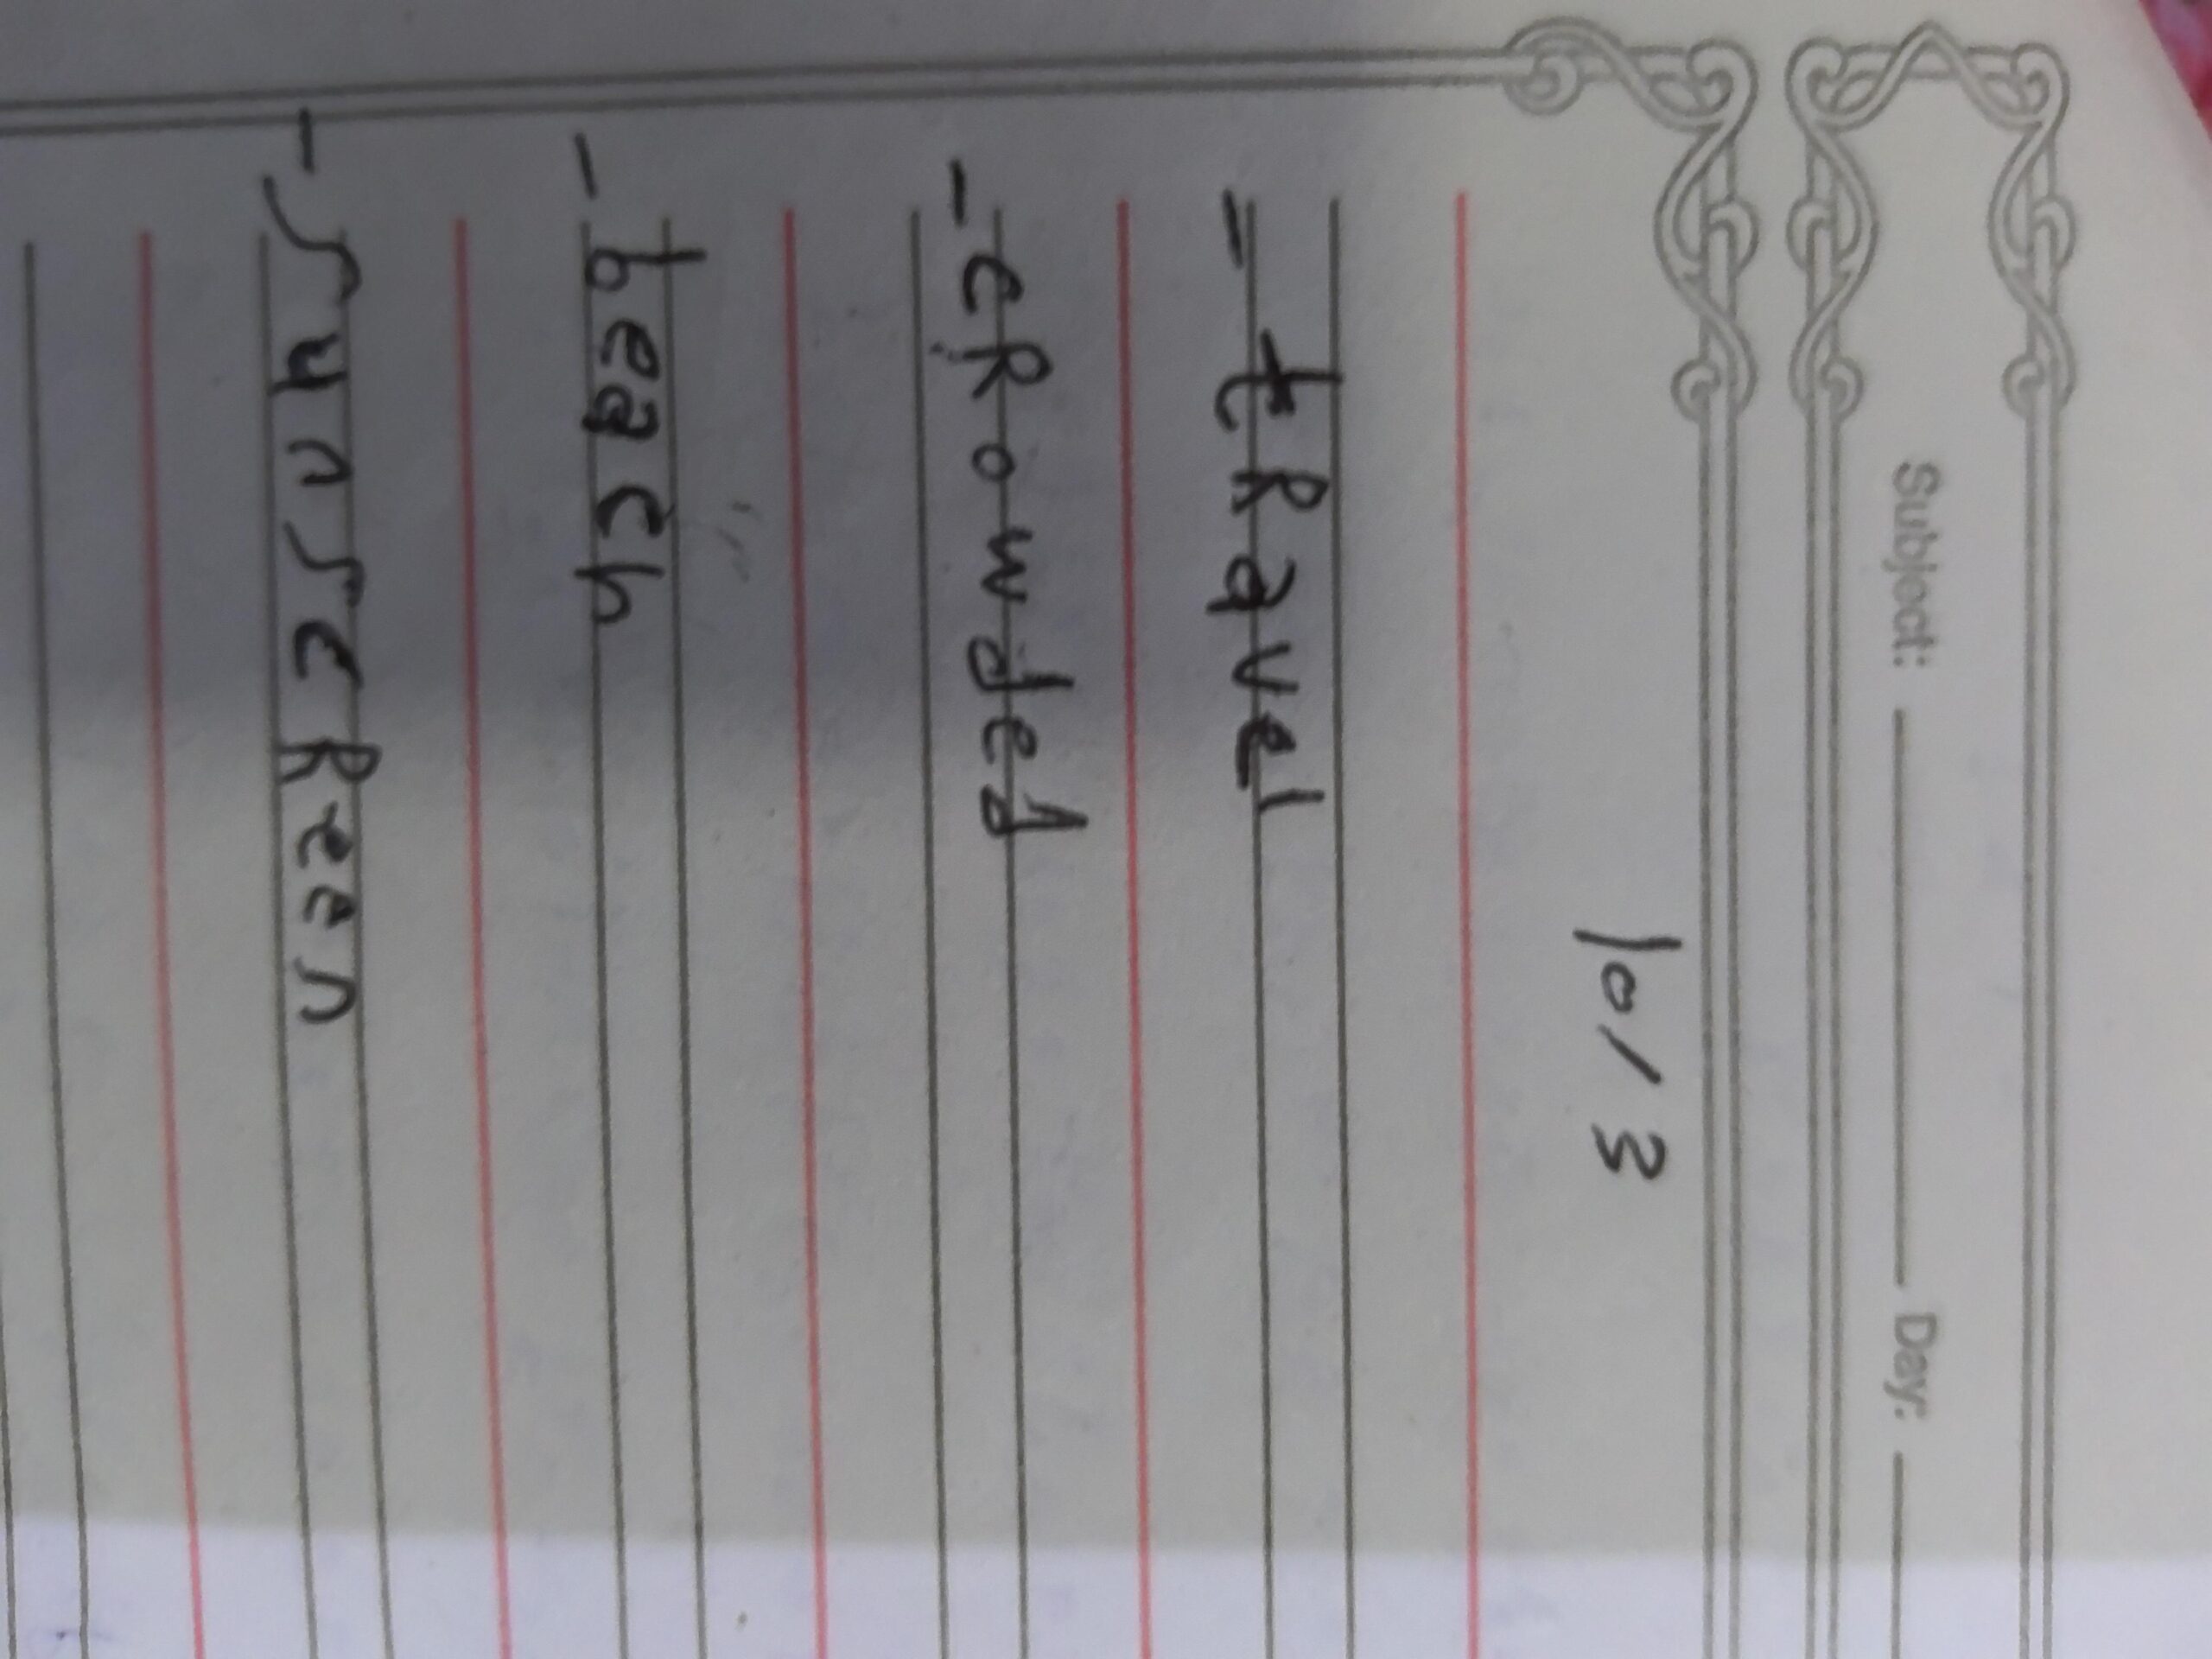 Subject: Day:
10/3
- tRavel
- cRowded
- beach
- sunscReen